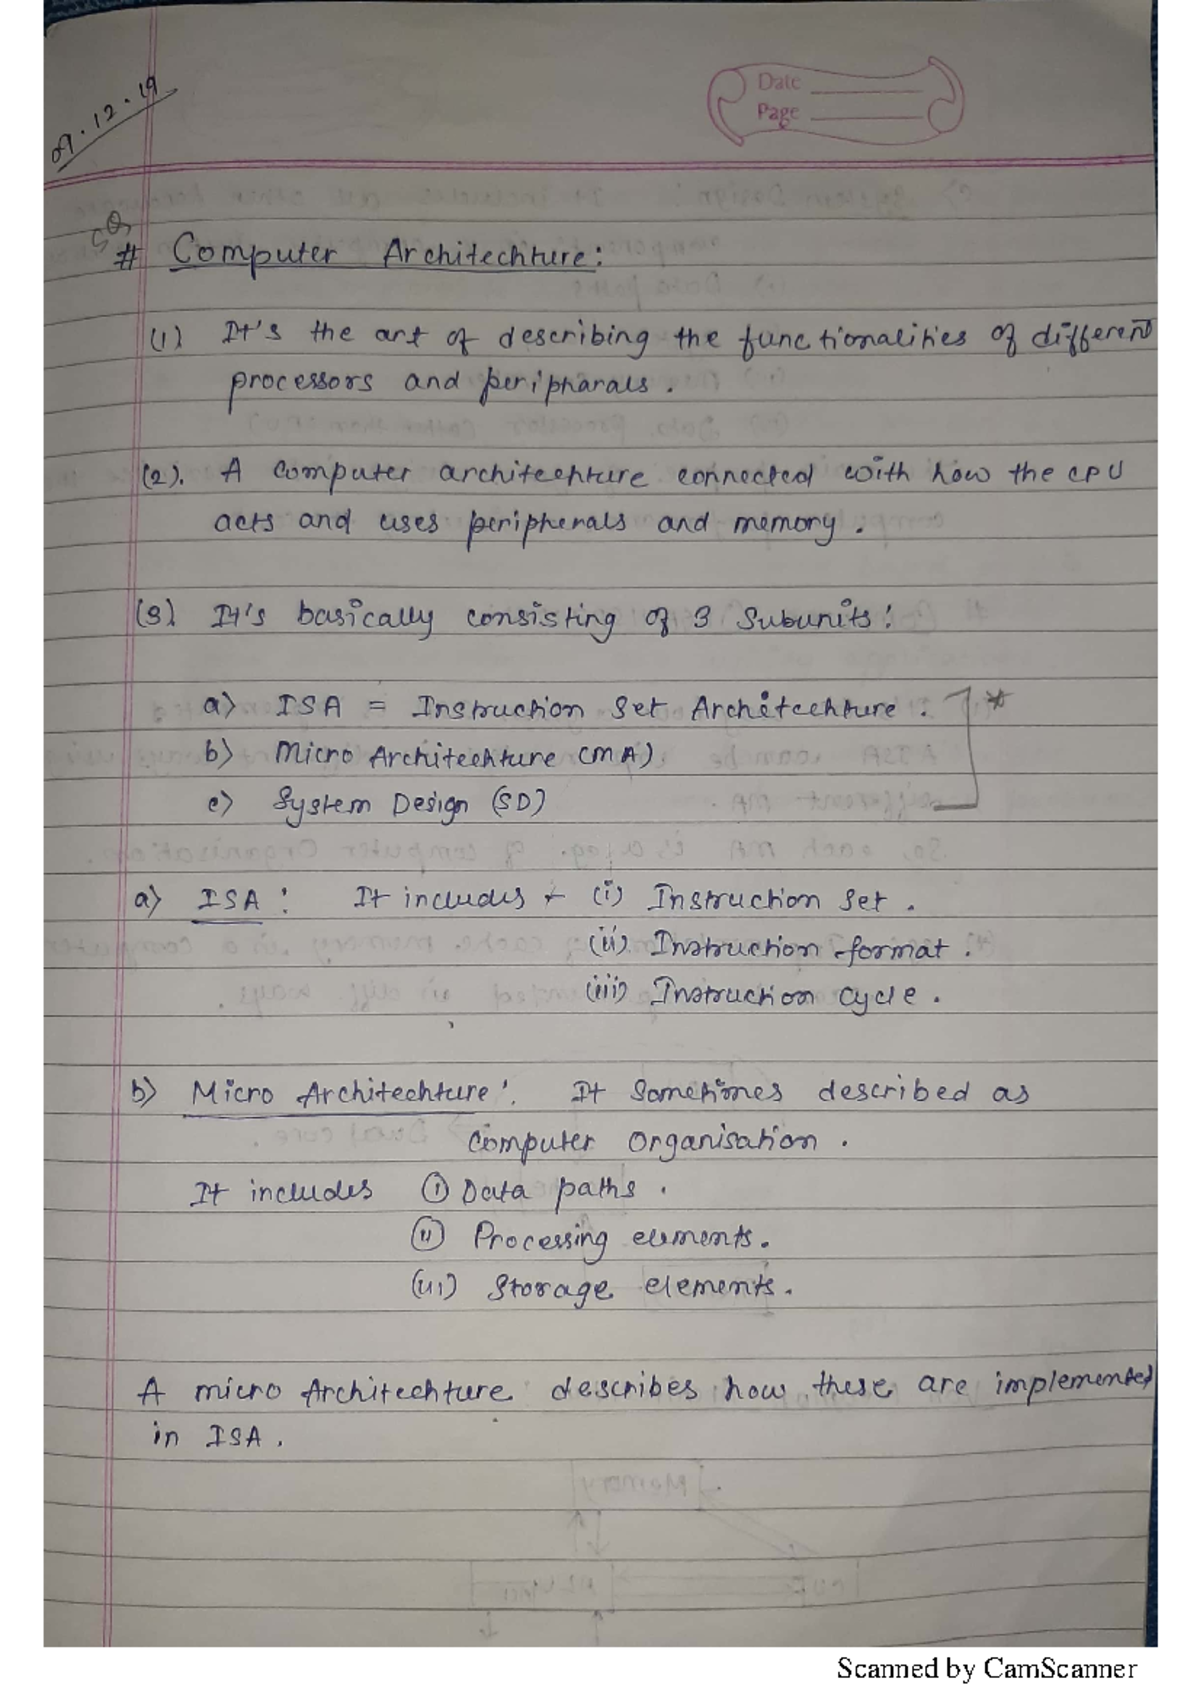 09.12.19
Date
Page
# Computer Architechture:
(1) It's the art of describing the functionalities of different
processors and peripharals.
(2). A computer architechture connected with how the CPU
acts and uses peripherals and memory.
(3) It's basically consisting of 3 Subunits:
a) ISA = Instruction Set Architechture.
*
b) Micro Architechture (MA).
c) System Design (SD)
a) ISA: It includes (i) Instruction Set.
(ii) Instruction format.
(iii) Instruction Cycle.
b) Micro Architechture: It Sometimes described as
Computer Organisation.
It includes (i) Data paths.
(ii) Processing elements.
(iii) Storage elements.
A micro Architechture describes how these are implemented
in ISA.
Scanned by CamScanner